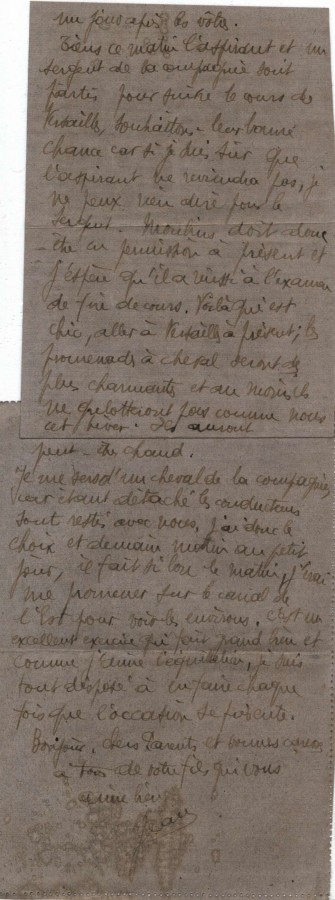 un jour après les vôtres.
Tiens ce matin l'aspirant et un
sergent de la compagnie sont
partis pour suivre le cours de
Versailles, souhaitons-leur bonne
chance car si je suis sûr que
l'aspirant ne reviendra pas, je
ne peux rien dire pour le
sergent. Moulins doit donc
être en permission à présent et
j'espère qu'il a réussi à l'examen
de fin de cours. Voilà qui est
chic, aller à Versailles à présent; les
promenades à cheval seront des
plus charmantes et au moins ils
ne grelotteront pas comme nous
cet hiver. Ils auront
peut-être chaud.
Je me sers d'un cheval de la compagnie
car étant détaché les conducteurs
sont restés avec nous. J'ai donc le
choix et demain matin au petit
jour, il fait si bon le matin, j'irai
me promener sur le canal de
l'Est pour voir les environs. C'est un
excellent exercice qui fait grand bien et
comme j'aime l'équitation, je suis
tout disposé à en faire chaque
fois que l'occasion se présente.
Bonjour, chers Parents et bonnes caresses
à Tous de votre fils qui vous
aime bien
Jean